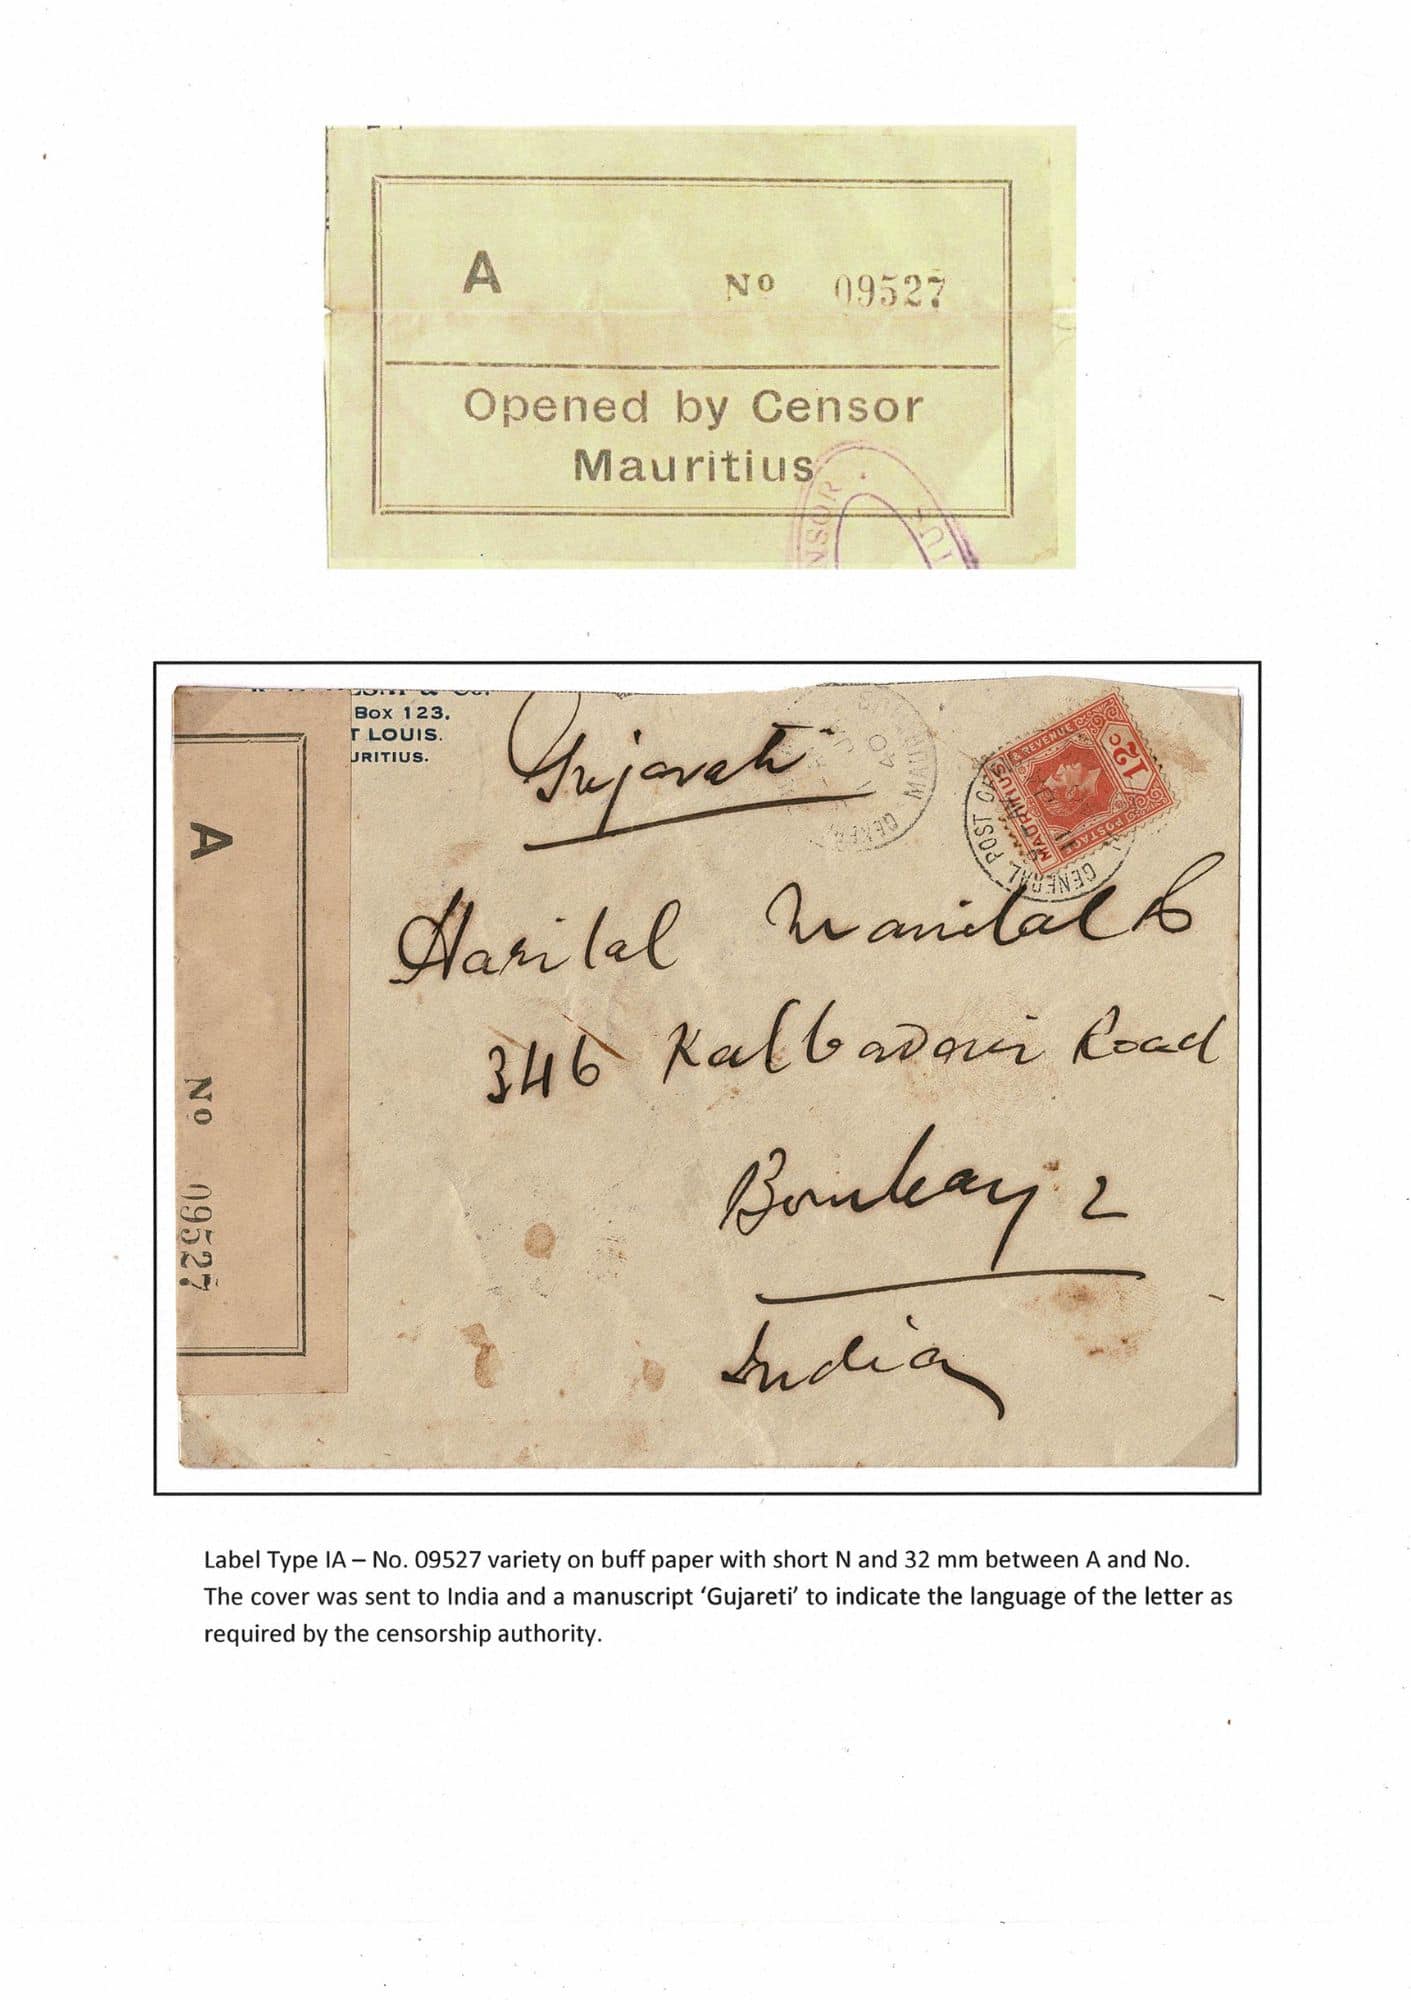 A No 09527
Opened by Censor
Mauritius
& Co.
Box 123,
T LOUIS.
URITIUS.
Gujarati
GENERAL POST OFFICE
MAURITIUS
POSTAGE & REVENUE
12c
A
No 09527
Harilal Manilal &
346 Kalbadavi Road
Bombay 2
India
Label Type IA – No. 09527 variety on buff paper with short N and 32 mm between A and No.
The cover was sent to India and a manuscript ‘Gujareti’ to indicate the language of the letter as
required by the censorship authority.